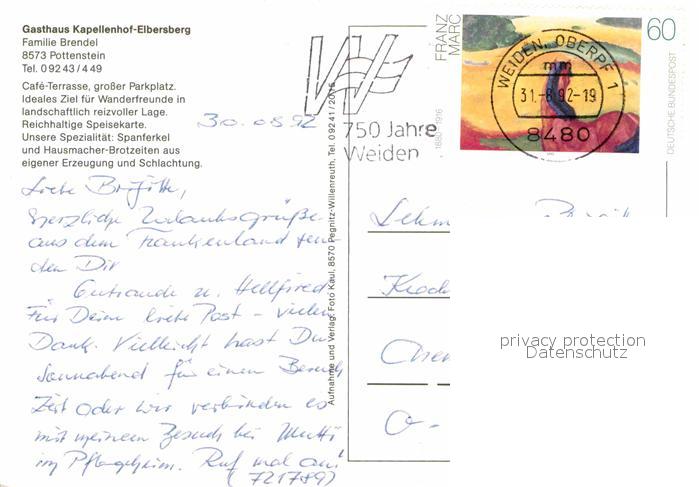 Gasthaus Kapellenhof-Elbersberg
Familie Brendel
8573 Pottenstein
Tel. 09243/449
Café-Terrasse, großer Parkplatz.
Ideales Ziel für Wanderfreunde in
landschaftlich reizvoller Lage.
Reichhaltige Speisekarte.
Unsere Spezialität: Spanferkel
und Hausmacher-Brotzeiten aus
eigener Erzeugung und Schlachtung.
30.08.92
Liebe Brigitte,
herzliche Urlaubsgrüße
aus dem Frankenland sen-
den Dir
Gutraude u. Hellfried
Für Deine liebe Post - vielen
Dank. Vielleicht hast Du
Sonnabend für einen Besuch
Zeit oder wir verbinden es
mit meinem Besuch bei Mutti
im Pflegeheim. Ruf mal an!
(721789)
Aufnahme und Verlag: Foto Kaul, 8570 Pegnitz-Willenreuth, Tel. 09241/2016
750 Jahre
Weiden
FRANZ
MARC
1880-1916
60
DEUTSCHE BUNDESPOST
WEIDEN, OBERPF 1
mm
31.-8.92-19
8480
Lehm
O-
privacy protection
Datenschutz